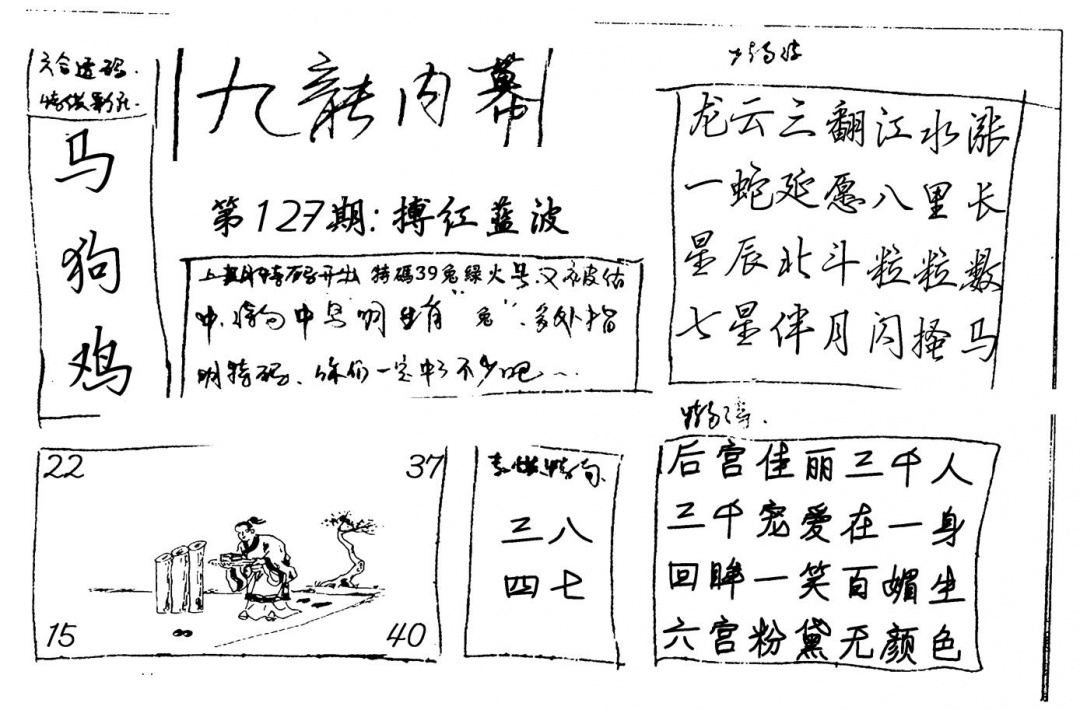 六合透码.
马
狗
鸡
九龍内幕
第127期:搏红蓝波
上期特码开出 特碼39兔綠火号.又被估
中.特句中号明生肖"兔".多处指
明特码、你们一定中了不少吧…
龙云三翻江水涨
一蛇延愿八里长
星辰北斗粒粒数
七星伴月闪搔马
22
37
15
40
三八
四七
后宫佳丽三千人
三千宠爱在一身
回眸一笑百媚生
六宫粉黛无颜色